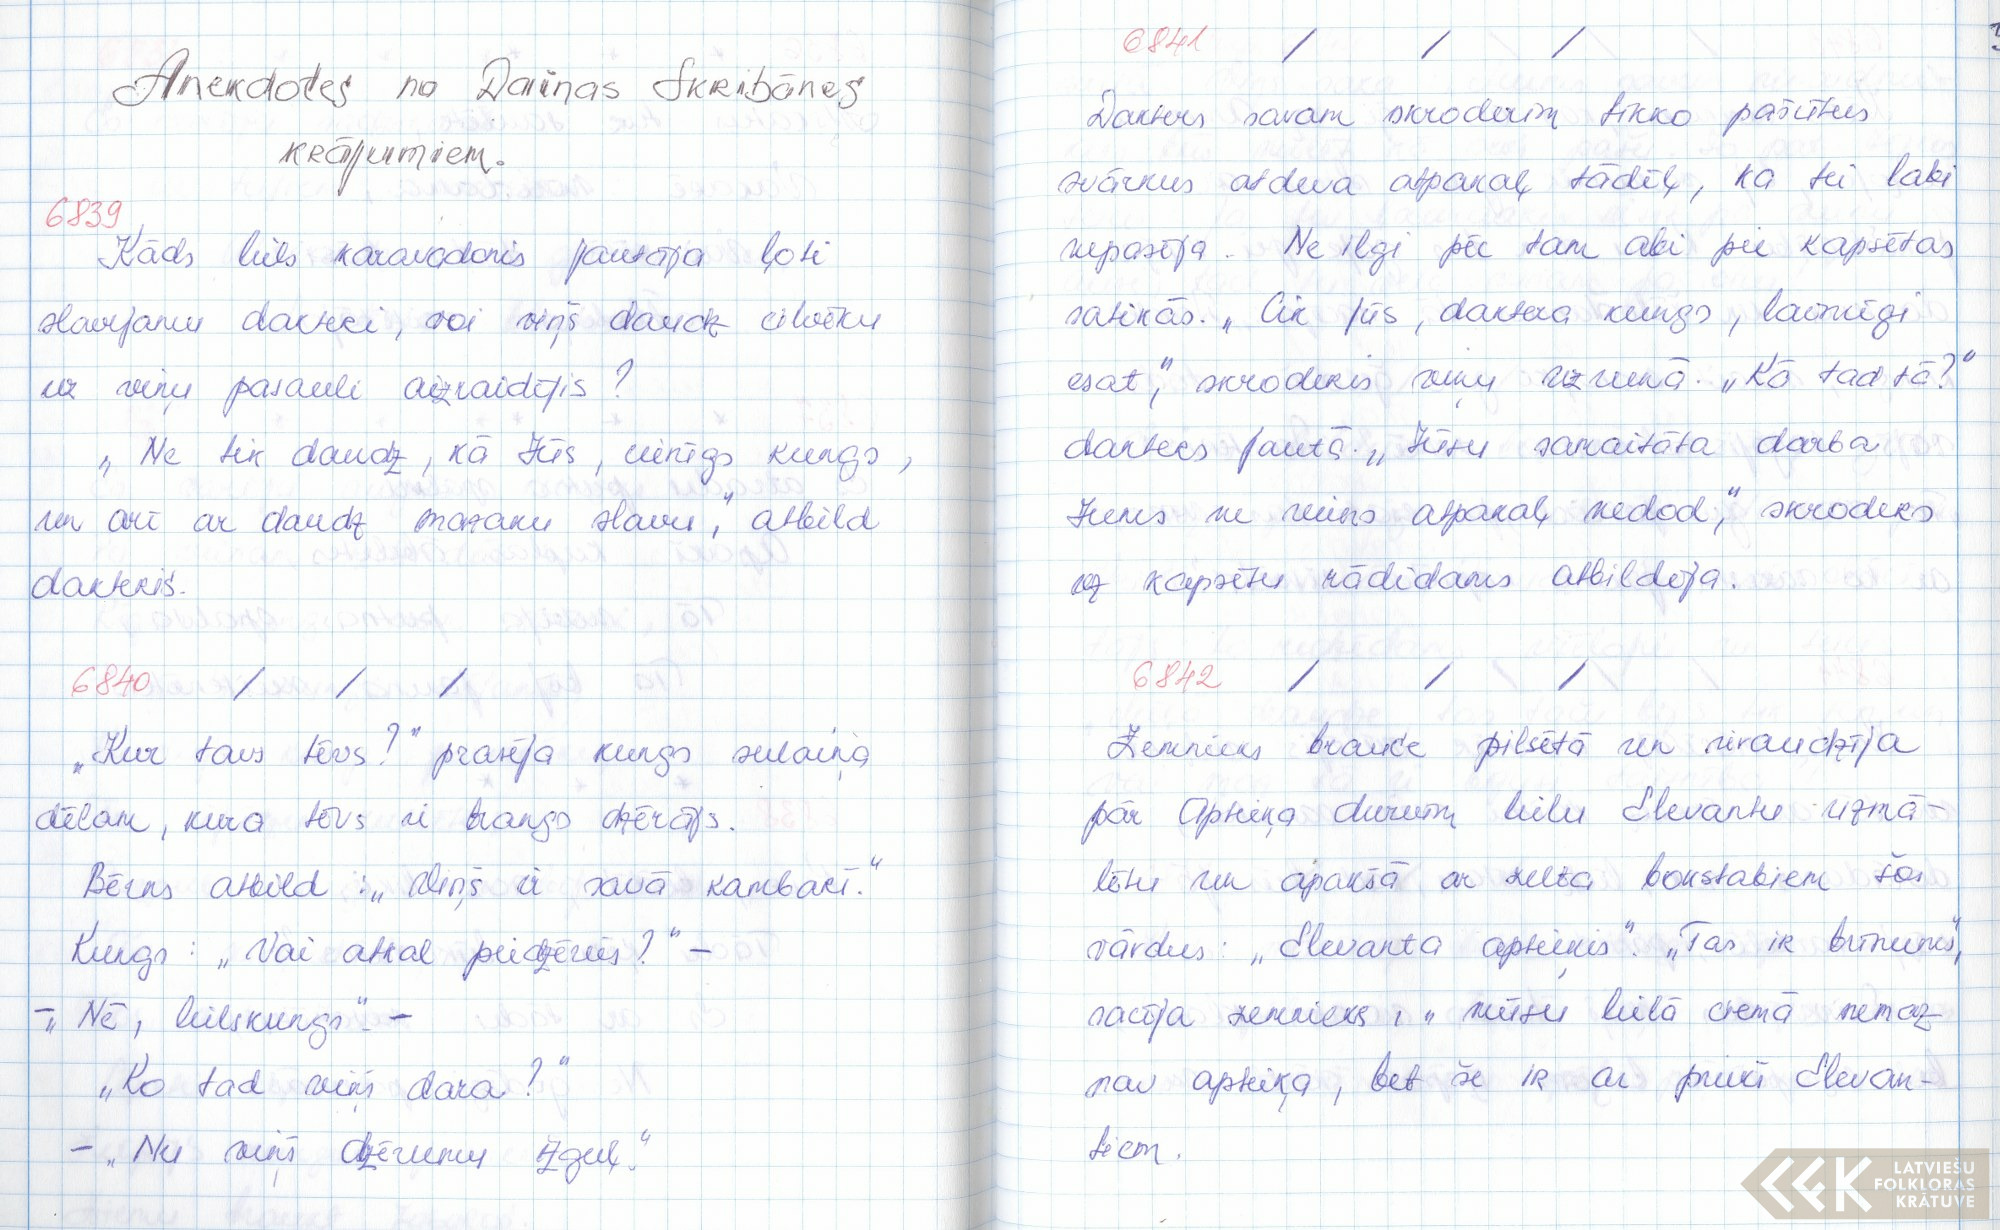 Anekdotes no Dainas Skribānes
krājumiem.
6839
Kāds liels karavadonis jautāja ļoti
slavjanu dakteri, voi viņš daudz cilvēku
uz viņu pasauli aizraidījis?
„Ne tik daudz, kā Jūs, cienīgs kungs,
un arī ar daudz mazaku slavu," atbild
dakteris.
6840 / / /
„Kur tavs tēvs?" prasēja kungs sulaiņa
dēlam, kura tēvs ir brangs dzērājs.
Bērns atbild: „Viņš ir savā kambarī."
Kungs: „Vai atkal piedzēries?" –
– „Nē, lielskungs" –
„Ko tad viņš dara?"
– „Nu viņš dzērumu izguļ."
6841 / / /
Dakters savam skroderim tikko pašūtus
svārkus atdeva atpakaļ tādēļ, ka tei labi
nepasēja. Ne ilgi pēc tam abi pie kapsētas
satikās. „Cik jūs, daktera kungs, laimīgi
esat", skroderis viņu uzrunā. „Kā tad tā?"
dakters jautā. „Jūsu samaitāta darba
Jums ne viens atpakaļ nedod," skroders
uz kapsētu rādīdams atbildēja.
6842 / / /
Zemnieks brauce pilsētā un ieraudzīja
pār Aptieķa durvim lielu Elevantu uzmā-
lētu un apakšā ar zelta bokstabiem šos
vārdus: „Elevanta aptieķis". „Tas ir brīnums",
sacīja zemnieks, „mūsu lielā ciemā nemaz
nav aptieķa, bet še ir ar priekš Elevan-
tiem.
LATVIEŠU
FOLKLORAS
KRĀTUVE